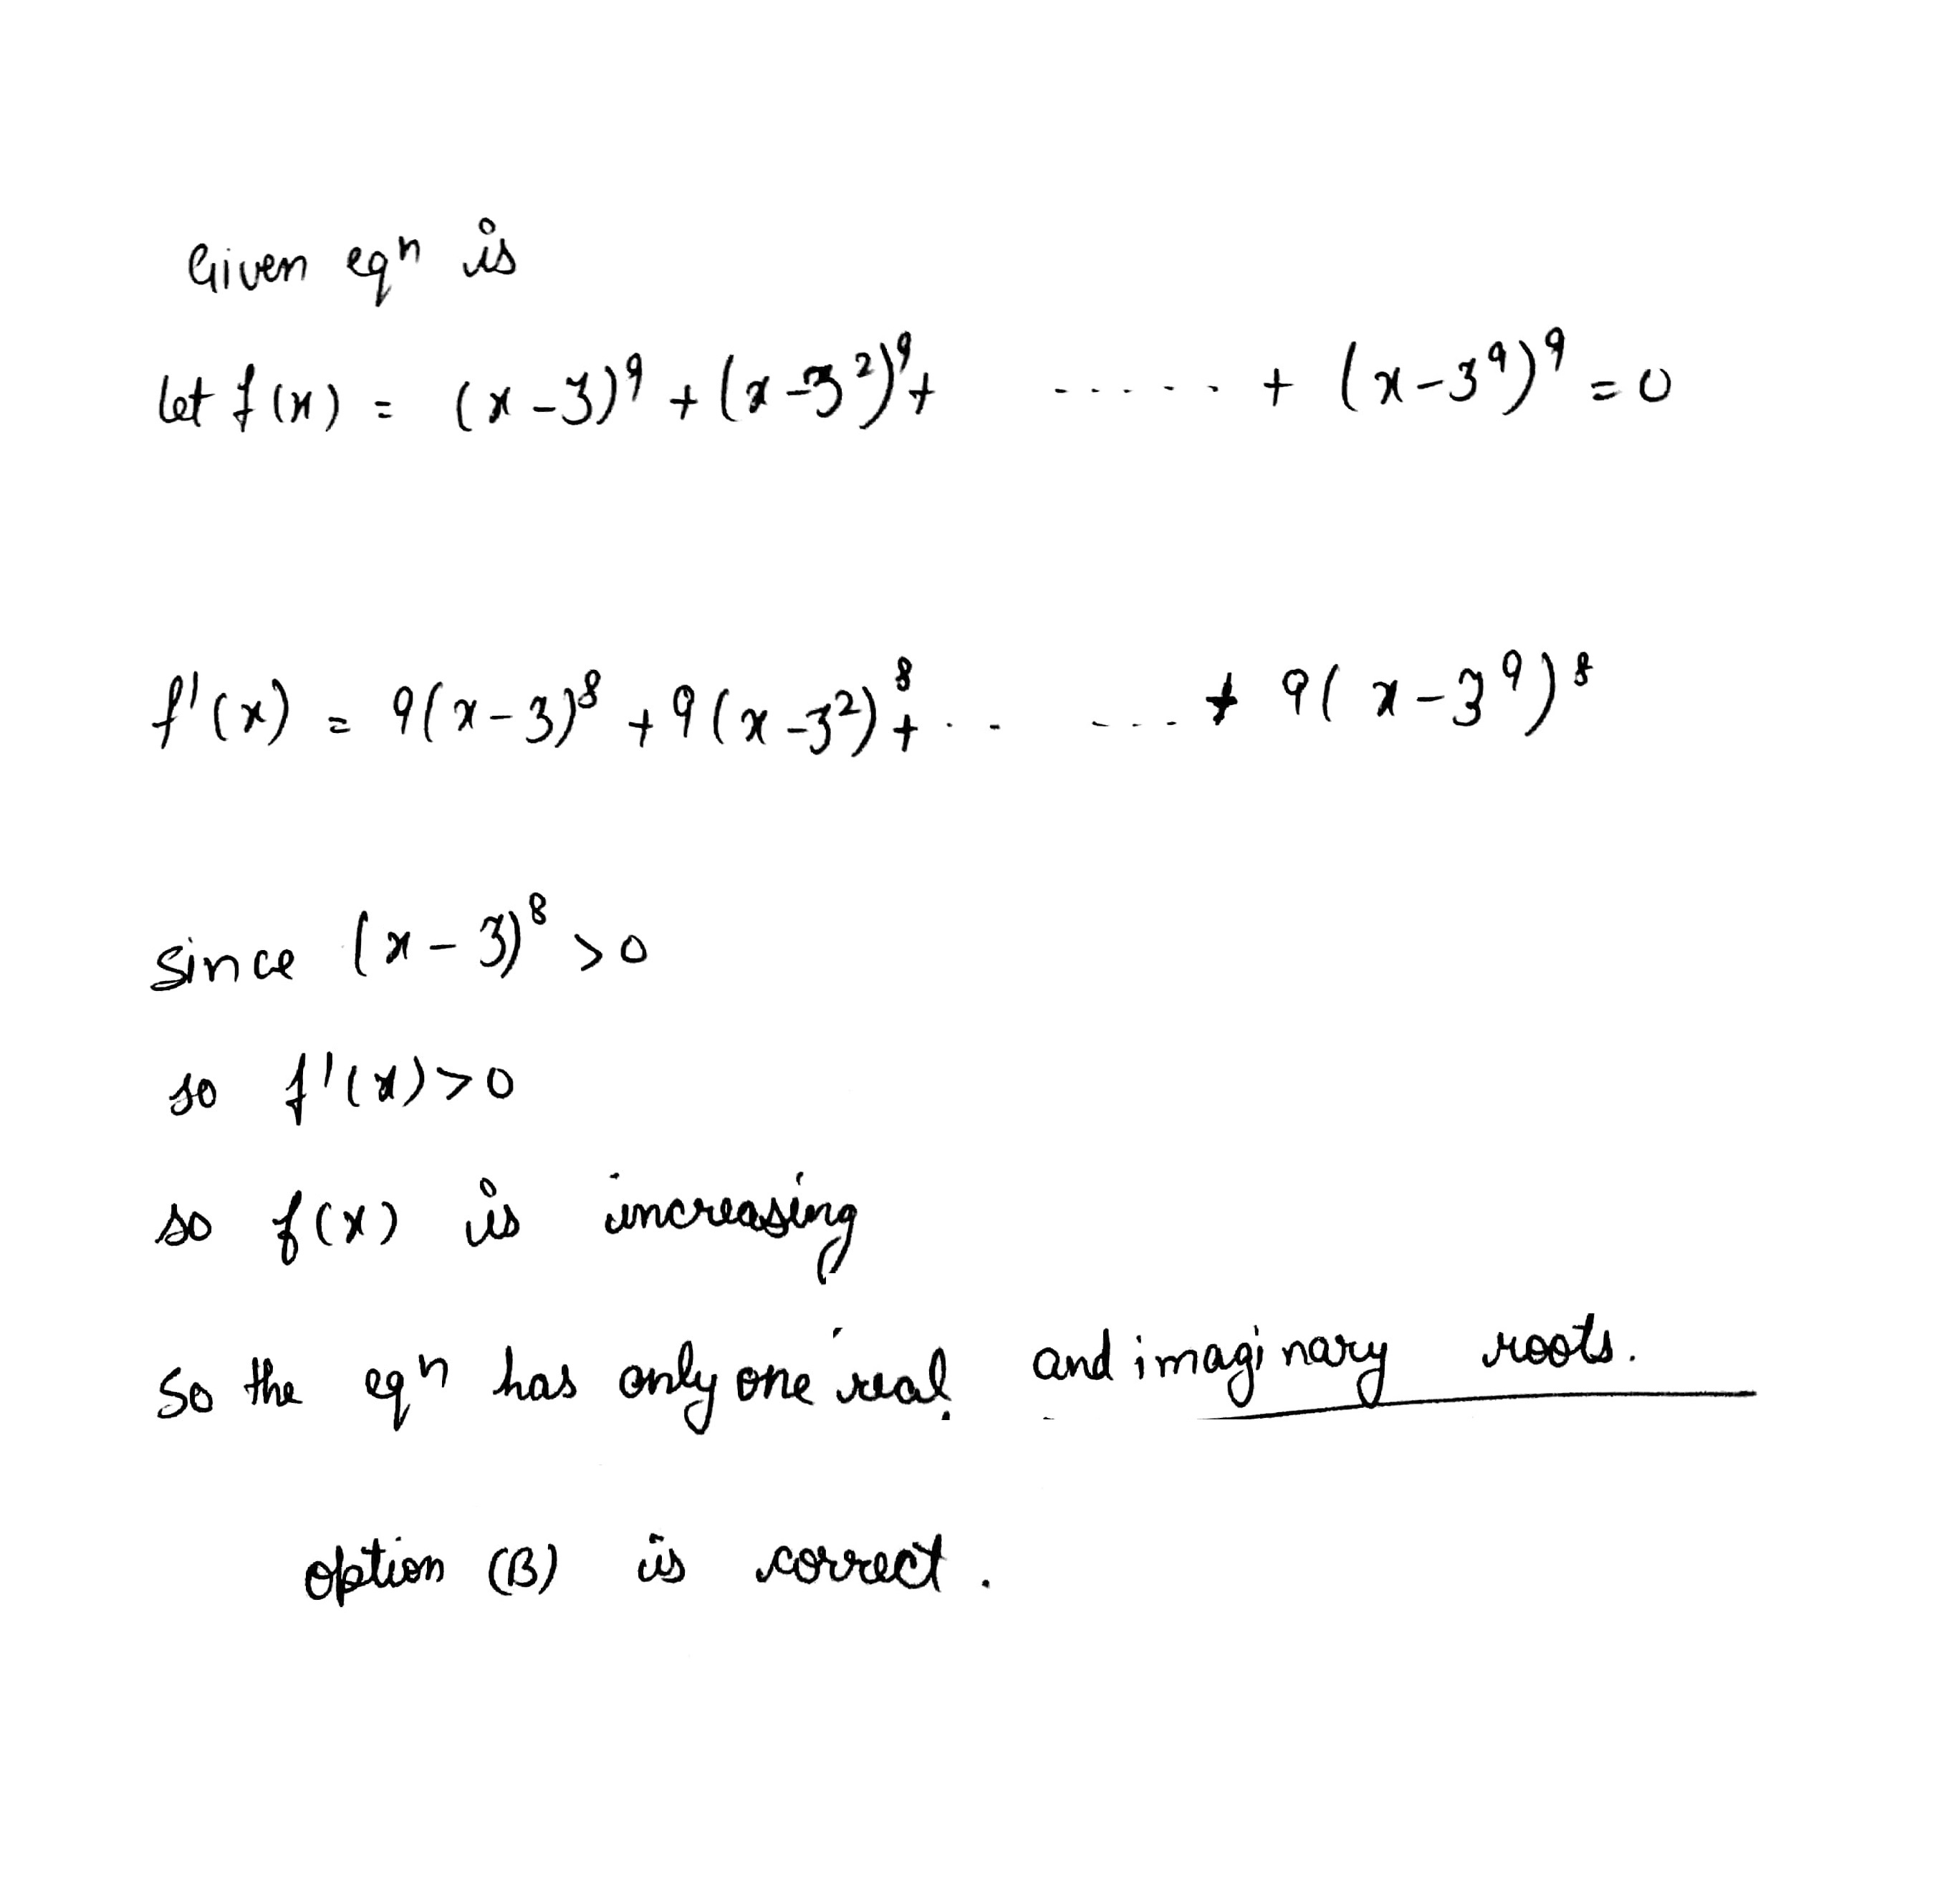 Given eqⁿ is
Let f(x) = (x-3)⁹ + (x-3²)⁹ + ...... + (x-3⁹)⁹ = 0
f'(x) = 9(x-3)⁸ + 9(x-3²)⁸ + .. .... + 9(x-3⁹)⁸
since (x-3)⁸ >0
so f'(x)>0
so f(x) is increasing
so the eqⁿ has only one real and imaginary roots.
option (B) is correct.